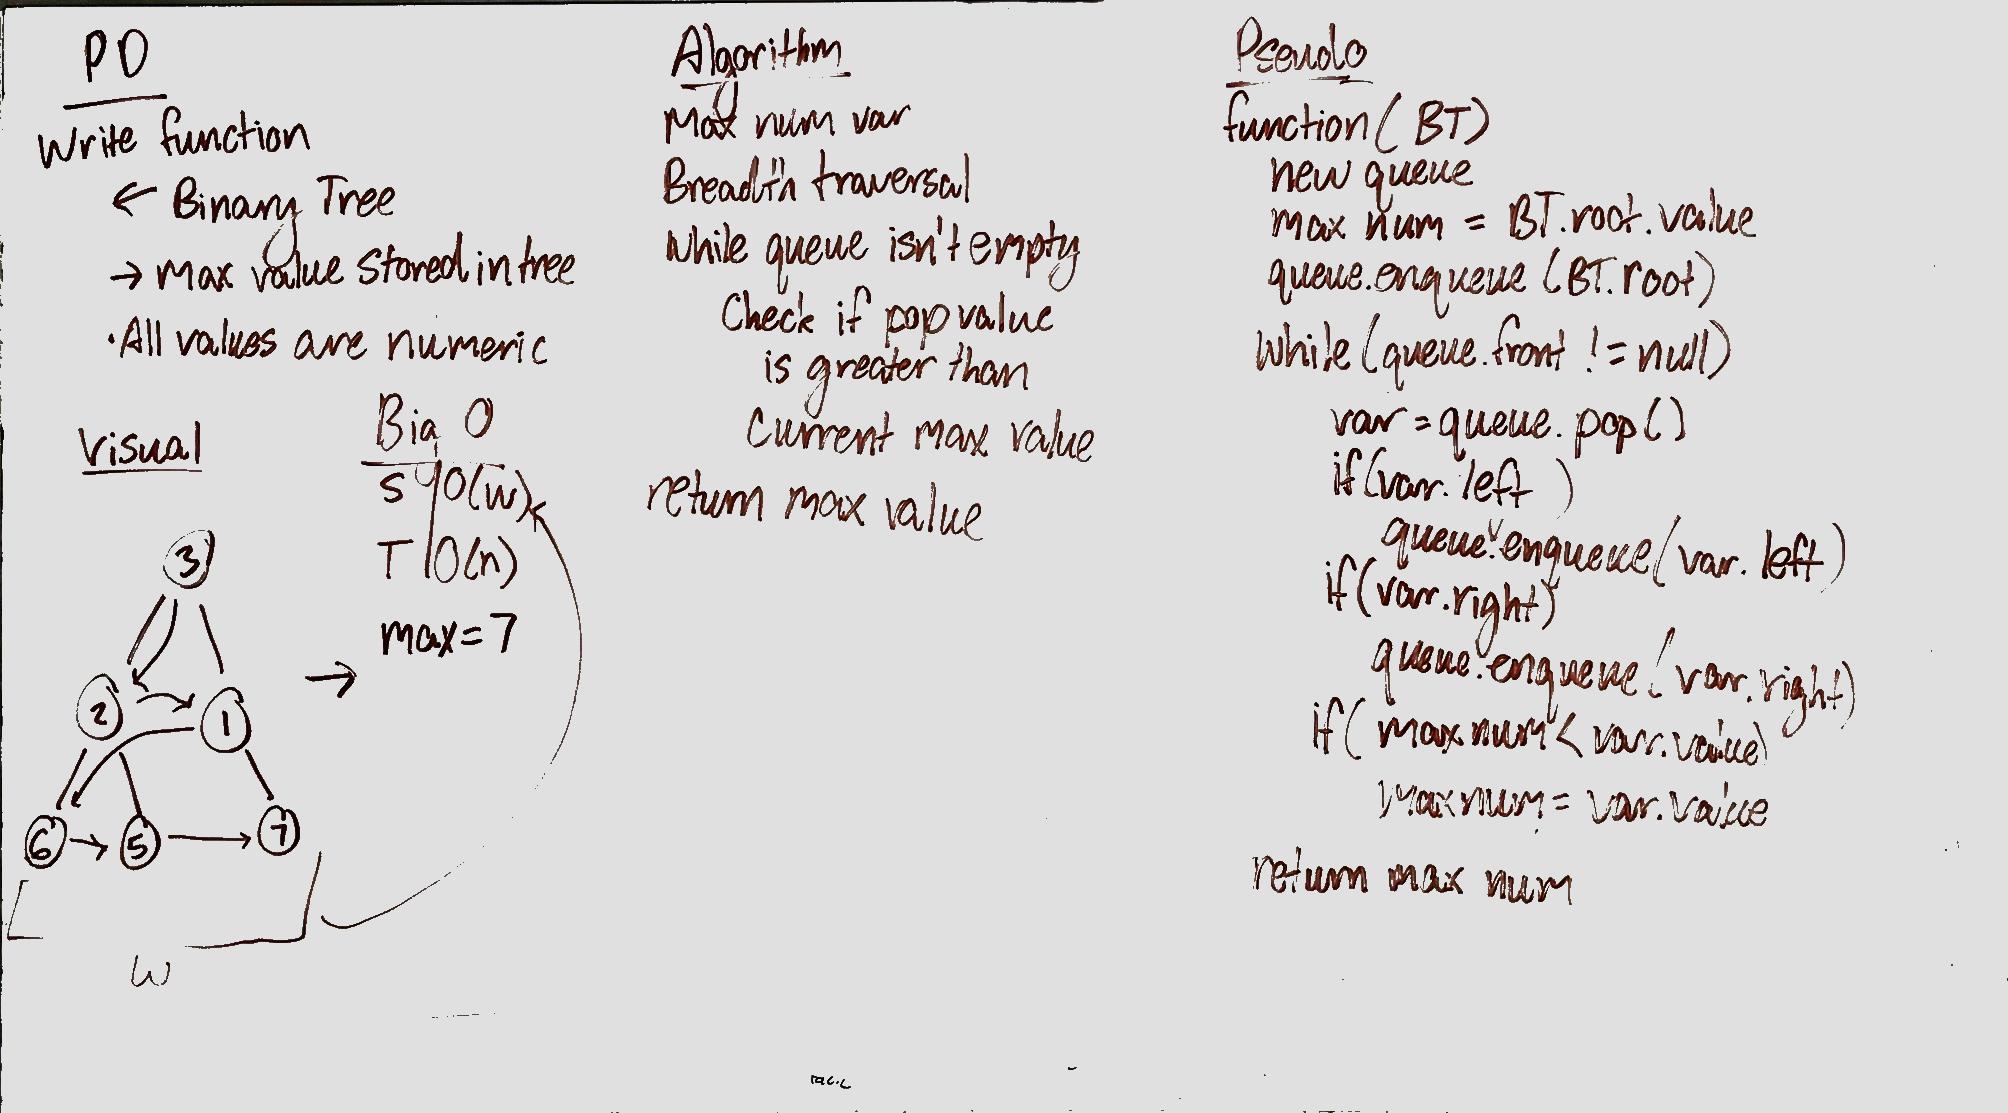 PD
Write function
← Binary Tree
→ max value stored in tree
· All values are numeric
Visual
3
2
1
6
5
7
W
Big O
S O(w)
T O(n)
max = 7
Algorithm
Max num var
Breadth traversal
While queue isn't empty
Check if pop value
is greater than
Current max value
return max value
Pseudo
function( BT)
new queue
max num = BT.root.value
queue.enqueue (BT.root)
While (queue.front != null)
var = queue.pop()
if(var.left )
queue.enqueue( var.left)
if(var.right)
queue.enqueue( var.right)
if( max num < var.value)
Max num = var.value
return max num